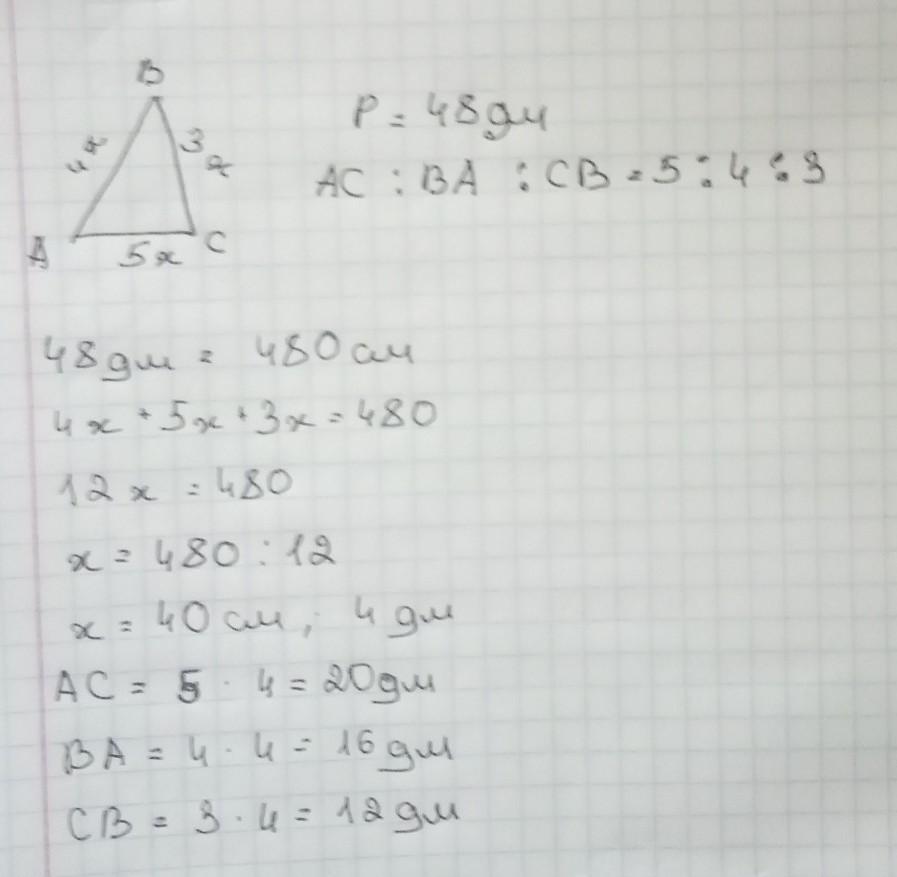 B
P = 48 дм
4x
3x
AC : BA : CB = 5 : 4 : 3
A
5x
C
48 дм = 480 см
4x + 5x + 3x = 480
12x = 480
x = 480 : 12
x = 40 см ; 4 дм
AC = 5 · 4 = 20 дм
BA = 4 · 4 = 16 дм
CB = 3 · 4 = 12 дм